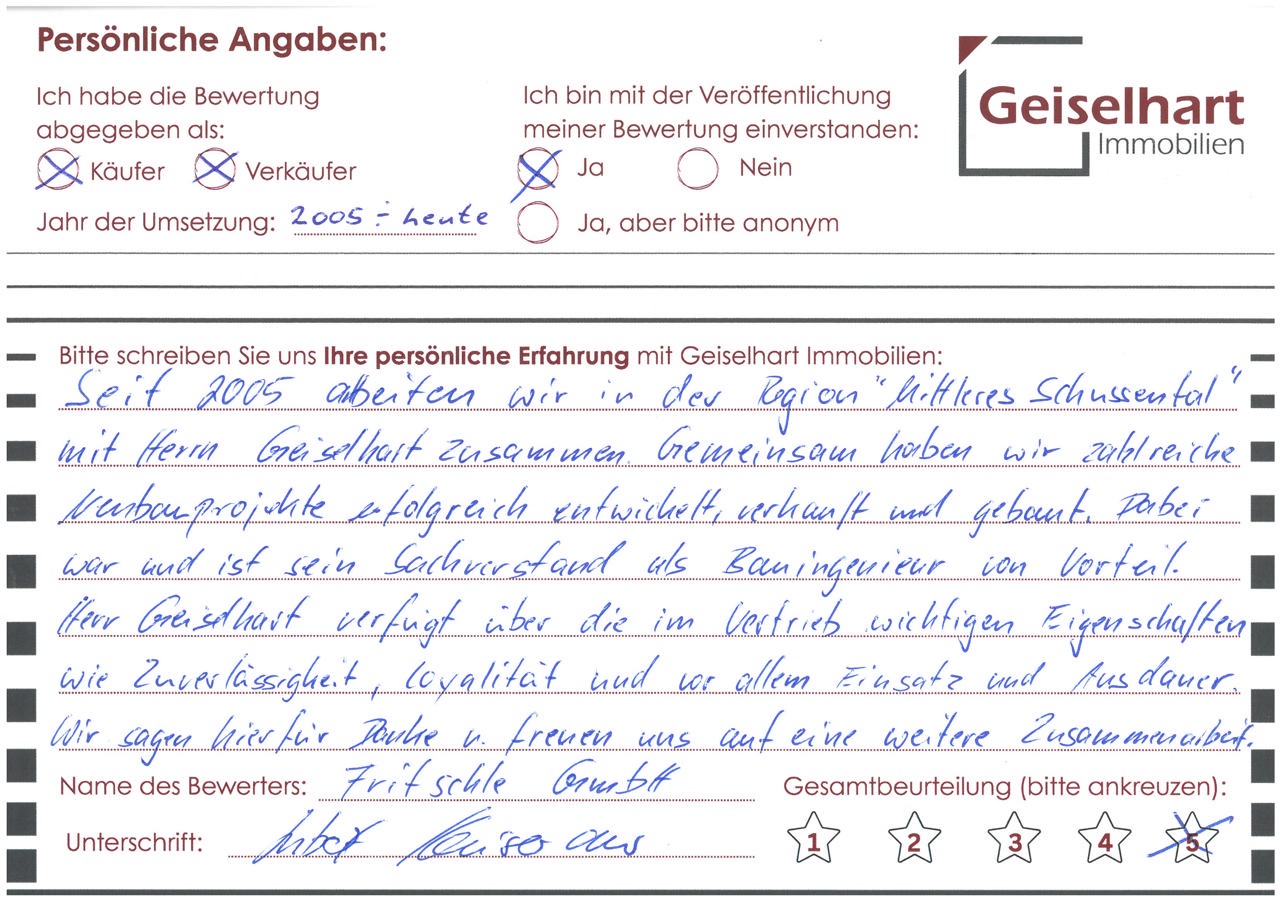 Persönliche Angaben:
Geiselhart
Immobilien
Ich habe die Bewertung
abgegeben als:
Käufer Verkäufer
Jahr der Umsetzung: 2005 ÷ heute
Ich bin mit der Veröffentlichung
meiner Bewertung einverstanden:
Ja Nein
Ja, aber bitte anonym
Bitte schreiben Sie uns Ihre persönliche Erfahrung mit Geiselhart Immobilien:
Seit 2005 arbeiten wir in der Region "Mittleres Schussental"
mit Herrn Geiselhart zusammen. Gemeinsam haben wir zahlreiche
Neubauprojekte erfolgreich entwickelt, verkauft und gebaut. Dabei
war und ist sein Sachverstand als Bauingenieur von Vorteil.
Herr Geiselhart verfügt über die im Vertrieb wichtigen Eigenschaften
wie Zuverlässigkeit, Loyalität und vor allem Einsatz und Ausdauer.
Wir sagen hierfür Danke u. freuen uns auf eine weitere Zusammenarbeit.
Name des Bewerters: Fritschle GmbH
Gesamtbeurteilung (bitte ankreuzen):
Unterschrift:
1 2 3 4 5